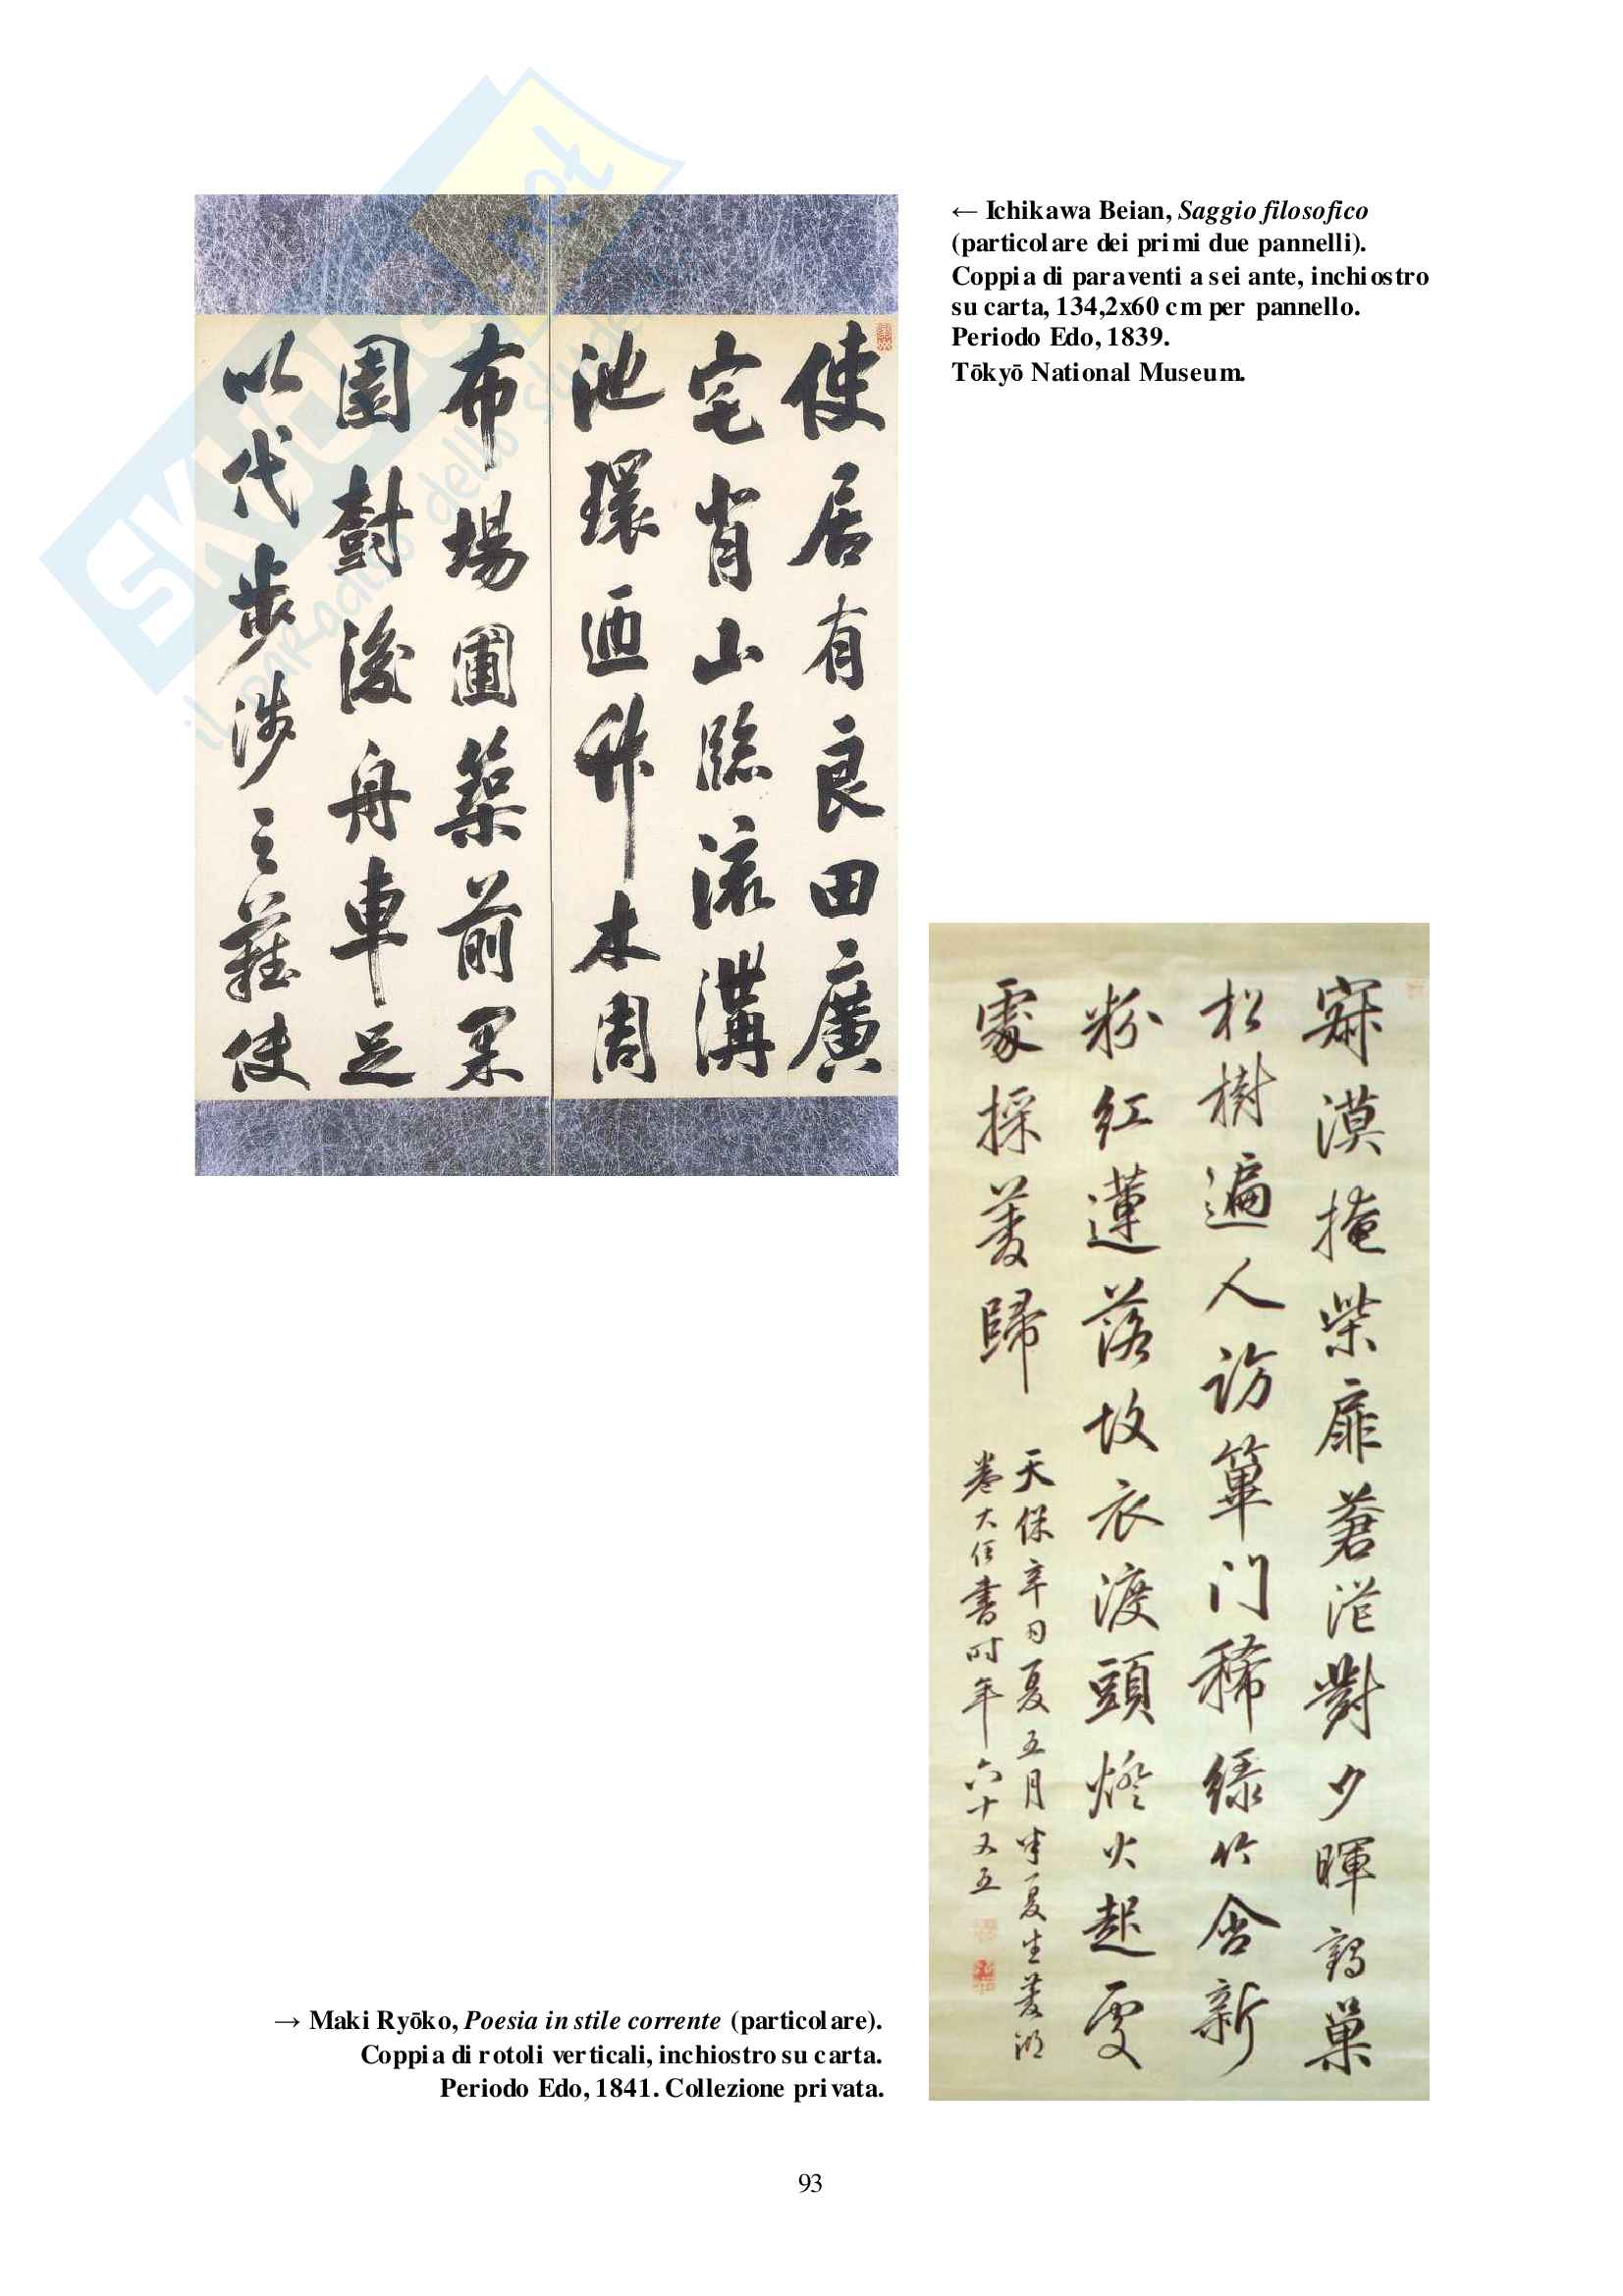 ← Ichikawa Beian, Saggio filosofico
(particolare dei primi due pannelli).
Coppia di paraventi a sei ante, inchiostro
su carta, 134,2x60 cm per pannello.
Periodo Edo, 1839.
Tōkyō National Museum.
使居有良田廣
宅背山臨流溝
池環迊竹木周
布場圃築前果
園樹後舟車足
以代步涉之難使
寂漠掩柴扉蒼茫對夕暉鶴巢
松樹遍人訪篳門稀綠竹含新
粉紅蓮落故衣渡頭燈火起處
處採菱歸
天保辛丑夏五月半夏生菱湖
卷大任書時年六十又五
→ Maki Ryōko, Poesia in stile corrente (particolare).
Coppia di rotoli verticali, inchiostro su carta.
Periodo Edo, 1841. Collezione privata.
93